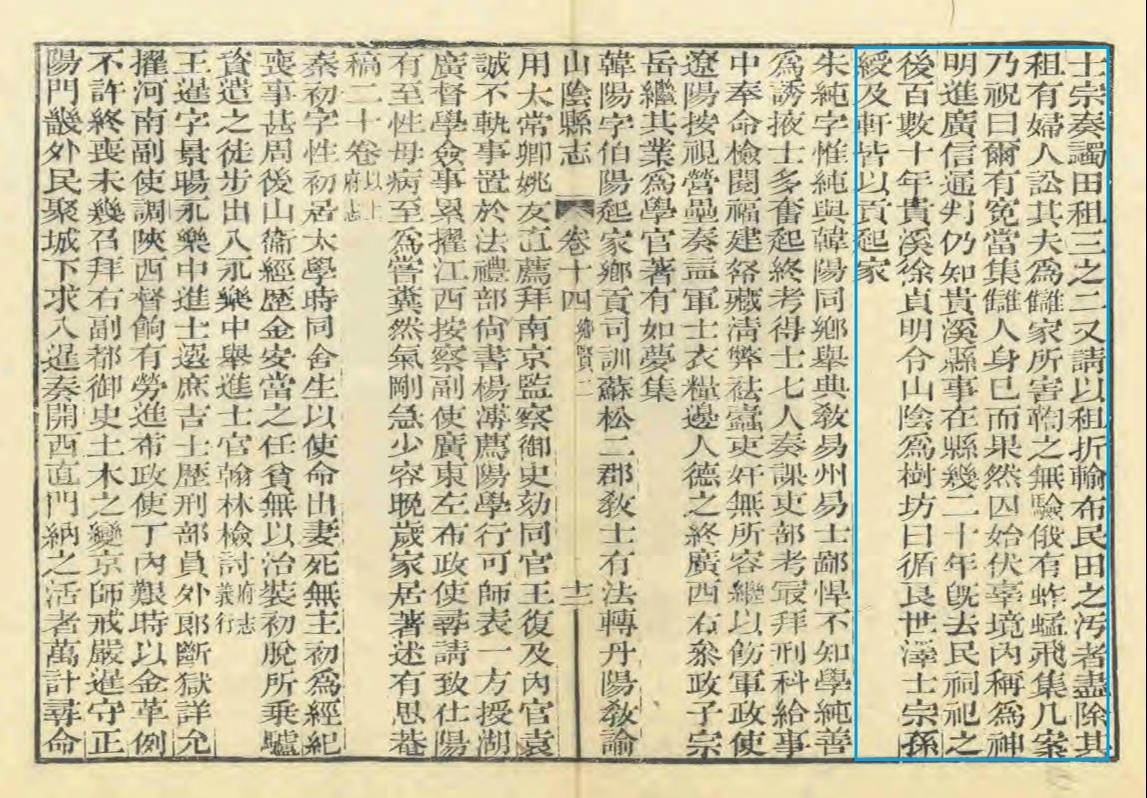 士宗奏蠲田租三之二又請以租折輸布民田之汚者盡除其
租有婦人訟其夫爲讎家所害鞫之無驗俄有蚱蜢飛集几案
乃祝曰爾有寃當集讎人身已而果然囚始伏辜境內稱爲神
明進廣信通判仍知貴溪縣事在縣幾二十年旣去民祠祀之
後百數十年貴溪徐貞明令山陰爲樹坊曰循良世澤士宗孫
綬及軒皆以貢起家
朱純字惟純與韓陽同鄉舉典敎易州易士鄙悍不知學純善
爲誘掖士多奮起終考得士七人奏課吏部考最拜刑科給事
中奉命檢閱福建帑藏淸弊袪蠹吏奸無所容繼以飭軍政使
遼陽按視營壘奏益軍士衣糧邊人德之終廣西右叅政子宗
岳繼其業爲學官著有如夢集
韓陽字伯陽起家鄉貢司訓蘇松二郡敎士有法轉丹陽敎諭
山陰縣志 卷十四鄉賢二 十二
用太常卿姚友直薦拜南京監察御史劾同官王復及內官袁
誠不軌事置於法禮部尙書楊溥薦陽學行可師表一方授湖
廣督學僉事累擢江西按察副使廣東左布政使尋請致仕陽
有至性母病至爲嘗糞然氣剛急少容晚歲家居著述有思菴
稿二十卷府志以上
秦初字性初居太學時同舍生以使命出妻死無主初爲經紀
喪事甚周後山衞經歷金安當之任貧無以治裝初脫所乘驢
資遣之徒步出入永樂中舉進士官翰林檢討府志義行
王暹字景暘永樂中進士選庶吉士歷刑部員外郎斷獄詳允
擢河南副使調陝西督餉有勞進布政使丁內艱時以金革例
不許終喪未幾召拜右副都御史土木之變京師戒嚴暹守正
陽門畿外民聚城下求入暹奏開西直門納之活者萬計尋命